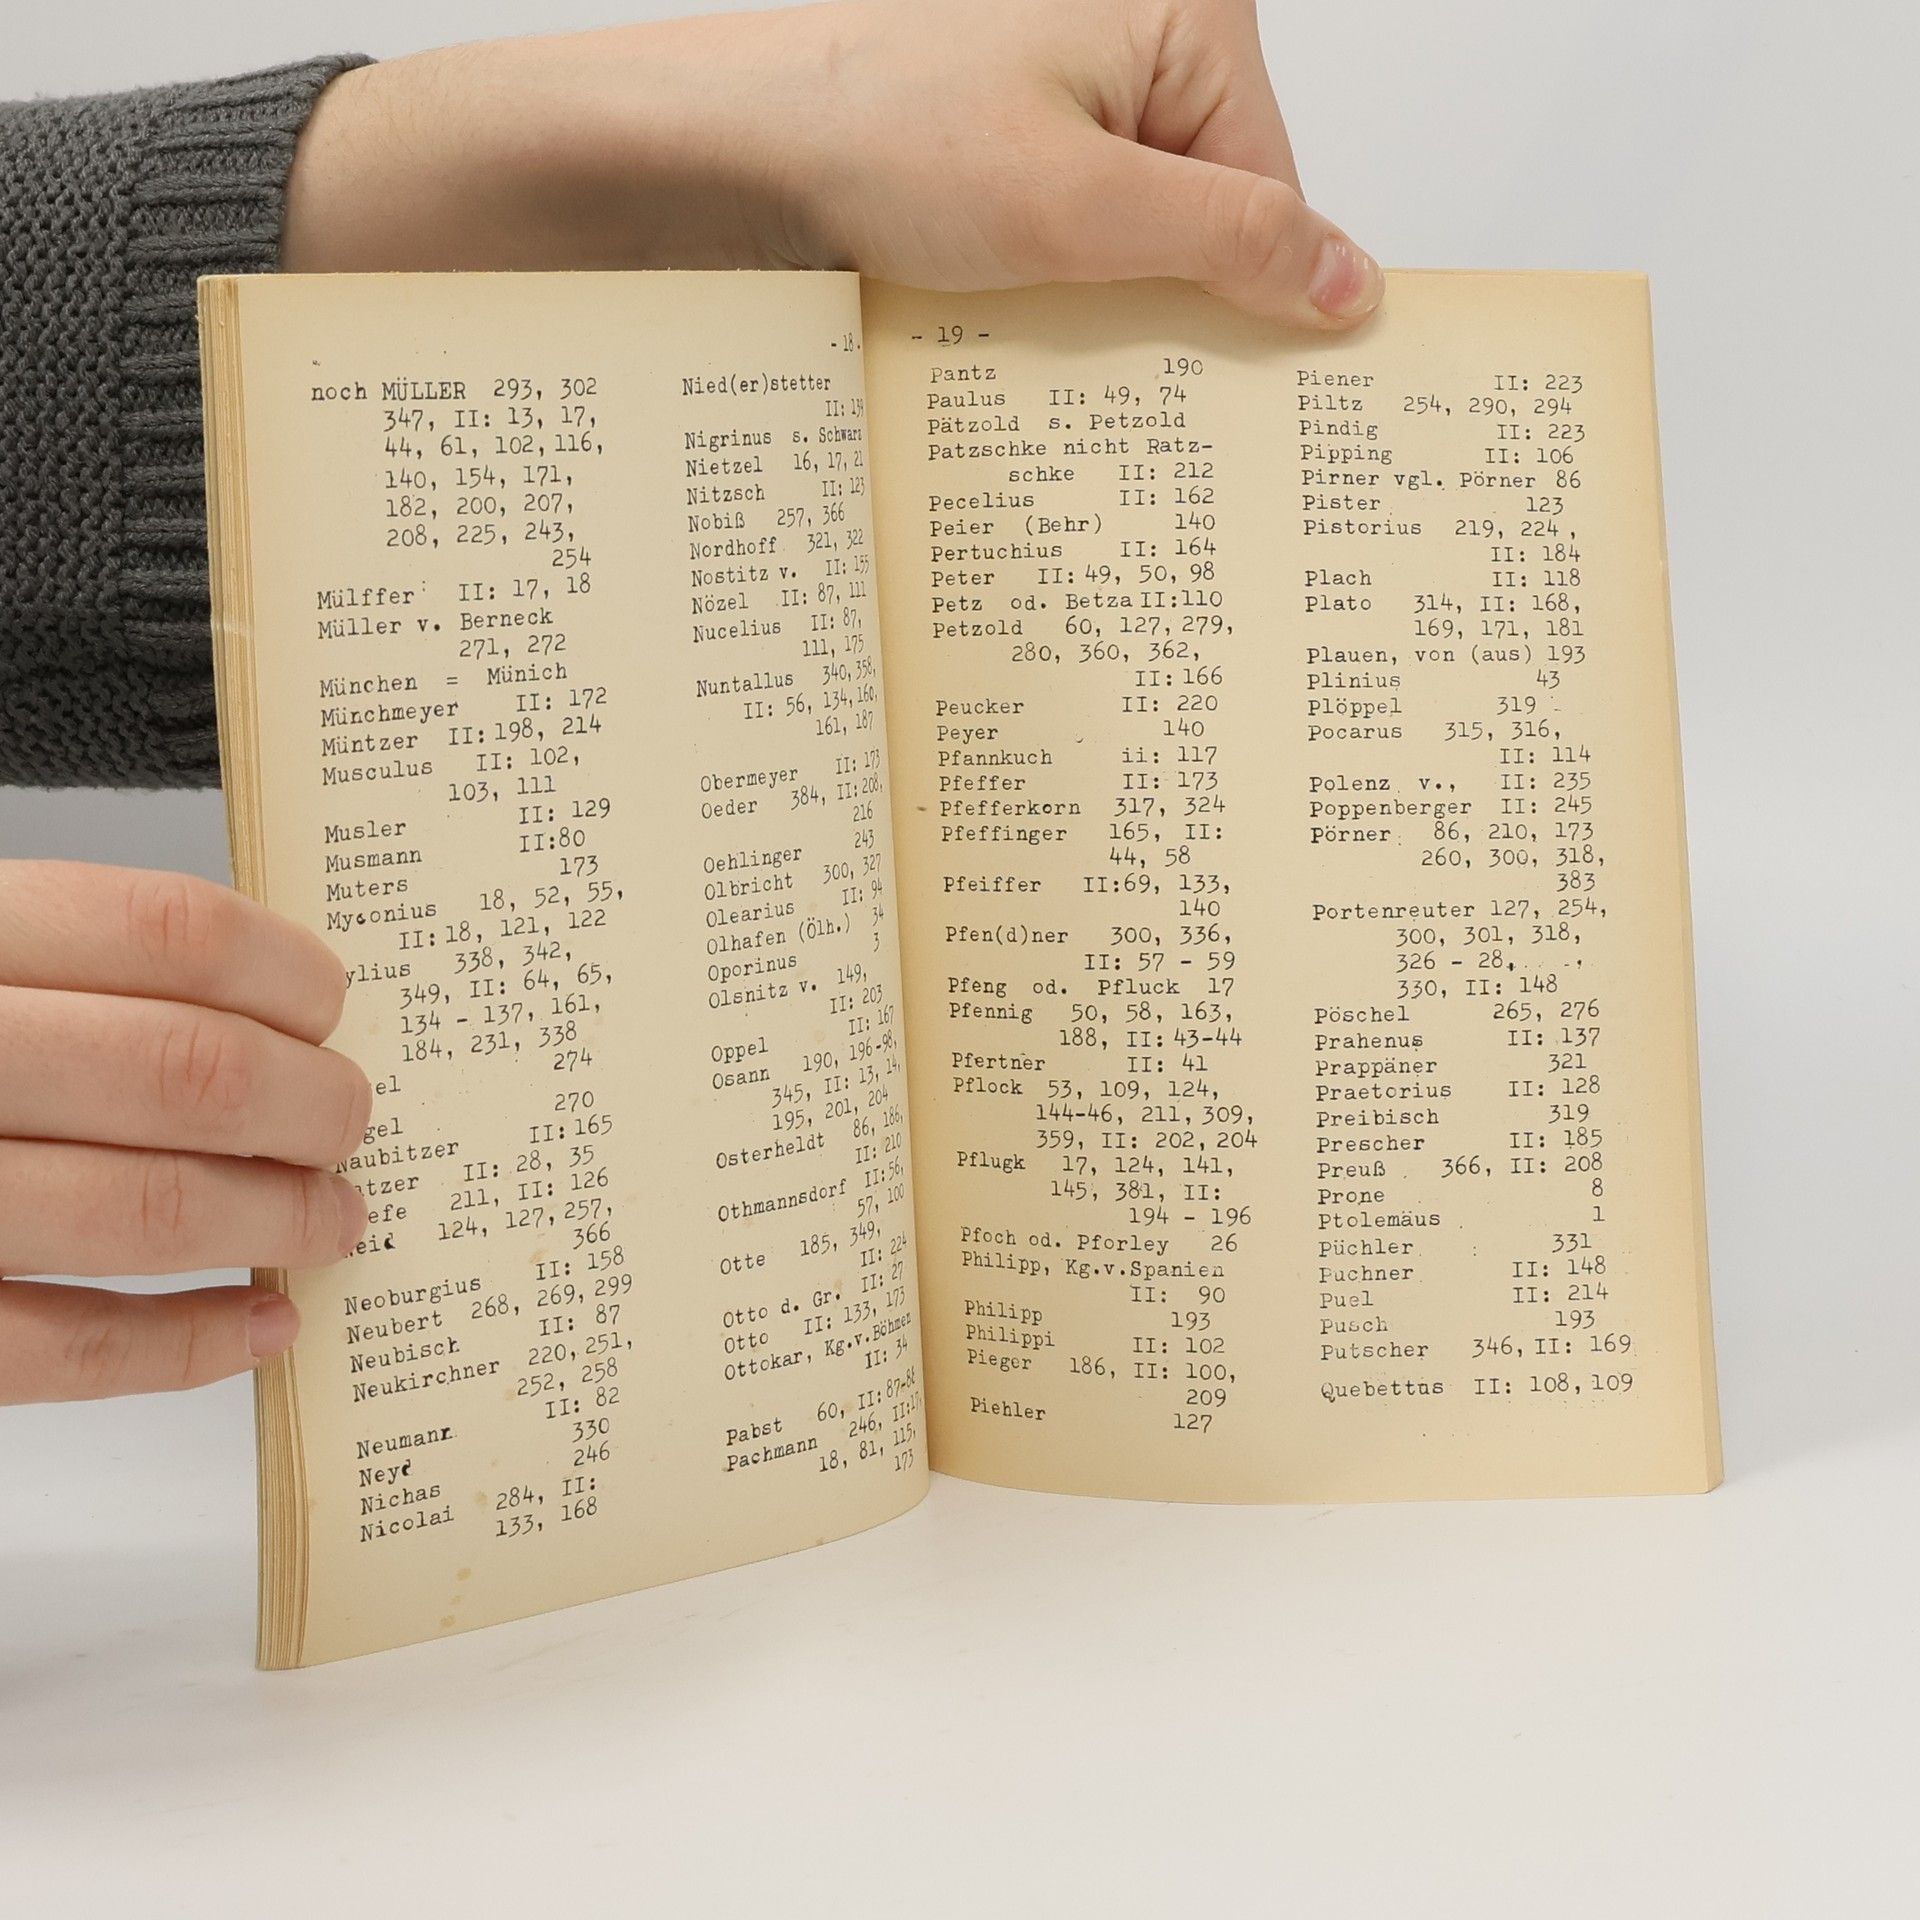 - 18 -
noch MÜLLER 293, 302
347, II: 13, 17,
44, 61, 102, 116,
140, 154, 171,
182, 200, 207,
208, 225, 243,
254
Mülffer II: 17, 18
Müller v. Berneck
271, 272
München = Münich
Münchmeyer II: 172
Müntzer II: 198, 214
Musculus II: 102,
103, 111
Musler II: 129
Musmann II:80
Muters 173
Myconius 18, 52, 55,
II: 18, 121, 122
ylius 338, 342,
349, II: 64, 65,
134 - 137, 161,
184, 231, 338
el 274
gel 270
Naubitzer II: 165
atzer II: 28, 35
efe 211, II: 126
Neid 124, 127, 257,
366
Neoburgius II: 158
Neubert 268, 269, 299
Neubisch II: 87
Neukirchner 220, 251,
252, 258
Neumann II: 82
Neyd 330
Nichas 246
Nicolai 284, II:
133, 168
Nied(er)stetter
II: 139
Nigrinus s. Schwarz
Nietzel 16, 17, 21
Nitzsch II: 123
Nobiß 257, 366
Nordhoff 321, 322
Nostitz v. II: 155
Nözel II: 87, 111
Nucelius II: 87,
111, 175
Nuntallus 340, 358,
II: 56, 134, 160,
161, 187
Obermeyer II: 173
Oeder 384, II: 208,
216
Oehlinger 243
Olbricht 300, 327
Olearius II: 94
Olhafen (Ölh.) 34
Oporinus 3
Olsnitz v. 149,
II: 203
Oppel II: 167
Osann 190, 196-98,
345, II: 13, 14,
195, 201, 204
Osterheldt 86, 186,
II: 210
Othmannsdorf II: 56,
57, 100
Otte 185, 349,
II: 224
Otto d. Gr. II: 27
Otto II: 133, 173
Ottokar, Kg.v.Böhmen
II: 34
Pabst 60, II: 87-88
Pachmann 246, II:17,
18, 81, 115,
173
- 19 -
Pantz 190
Paulus II: 49, 74
Pätzold s. Petzold
Patzschke nicht Ratz-
schke II: 212
Pecelius II: 162
Peier (Behr) 140
Pertuchius II: 164
Peter II: 49, 50, 98
Petz od. Betza II:110
Petzold 60, 127, 279,
280, 360, 362,
II: 166
Peucker II: 220
Peyer 140
Pfannkuch ii: 117
Pfeffer II: 173
Pfefferkorn 317, 324
Pfeffinger 165, II:
44, 58
Pfeiffer II:69, 133,
140
Pfen(d)ner 300, 336,
II: 57 - 59
Pfeng od. Pfluck 17
Pfennig 50, 58, 163,
188, II: 43-44
Pfertner II: 41
Pflock 53, 109, 124,
144-46, 211, 309,
359, II: 202, 204
Pflugk 17, 124, 141,
145, 381, II:
194 - 196
Pfoch od. Pforley 26
Philipp, Kg.v.Spanien
II: 90
Philipp 193
Philippi II: 102
Pieger 186, II: 100,
209
Piehler 127
Piener II: 223
Piltz 254, 290, 294
Pindig II: 223
Pipping II: 106
Pirner vgl. Pörner 86
Pister 123
Pistorius 219, 224,
II: 184
Plach II: 118
Plato 314, II: 168,
169, 171, 181
Plauen, von (aus) 193
Plinius 43
Plöppel 319
Pocarus 315, 316,
II: 114
Polenz v., II: 235
Poppenberger II: 245
Pörner 86, 210, 173
260, 300, 318,
383
Portenreuter 127, 254,
300, 301, 318,
326 - 28,
330, II: 148
Pöschel 265, 276
Prahenus II: 137
Prappäner 321
Praetorius II: 128
Preibisch 319
Prescher II: 185
Preuß 366, II: 208
Prone 8
Ptolemäus 1
Püchler 331
Puchner II: 148
Puel II: 214
Pusch 193
Putscher 346, II: 169
Quebettus II: 108, 109